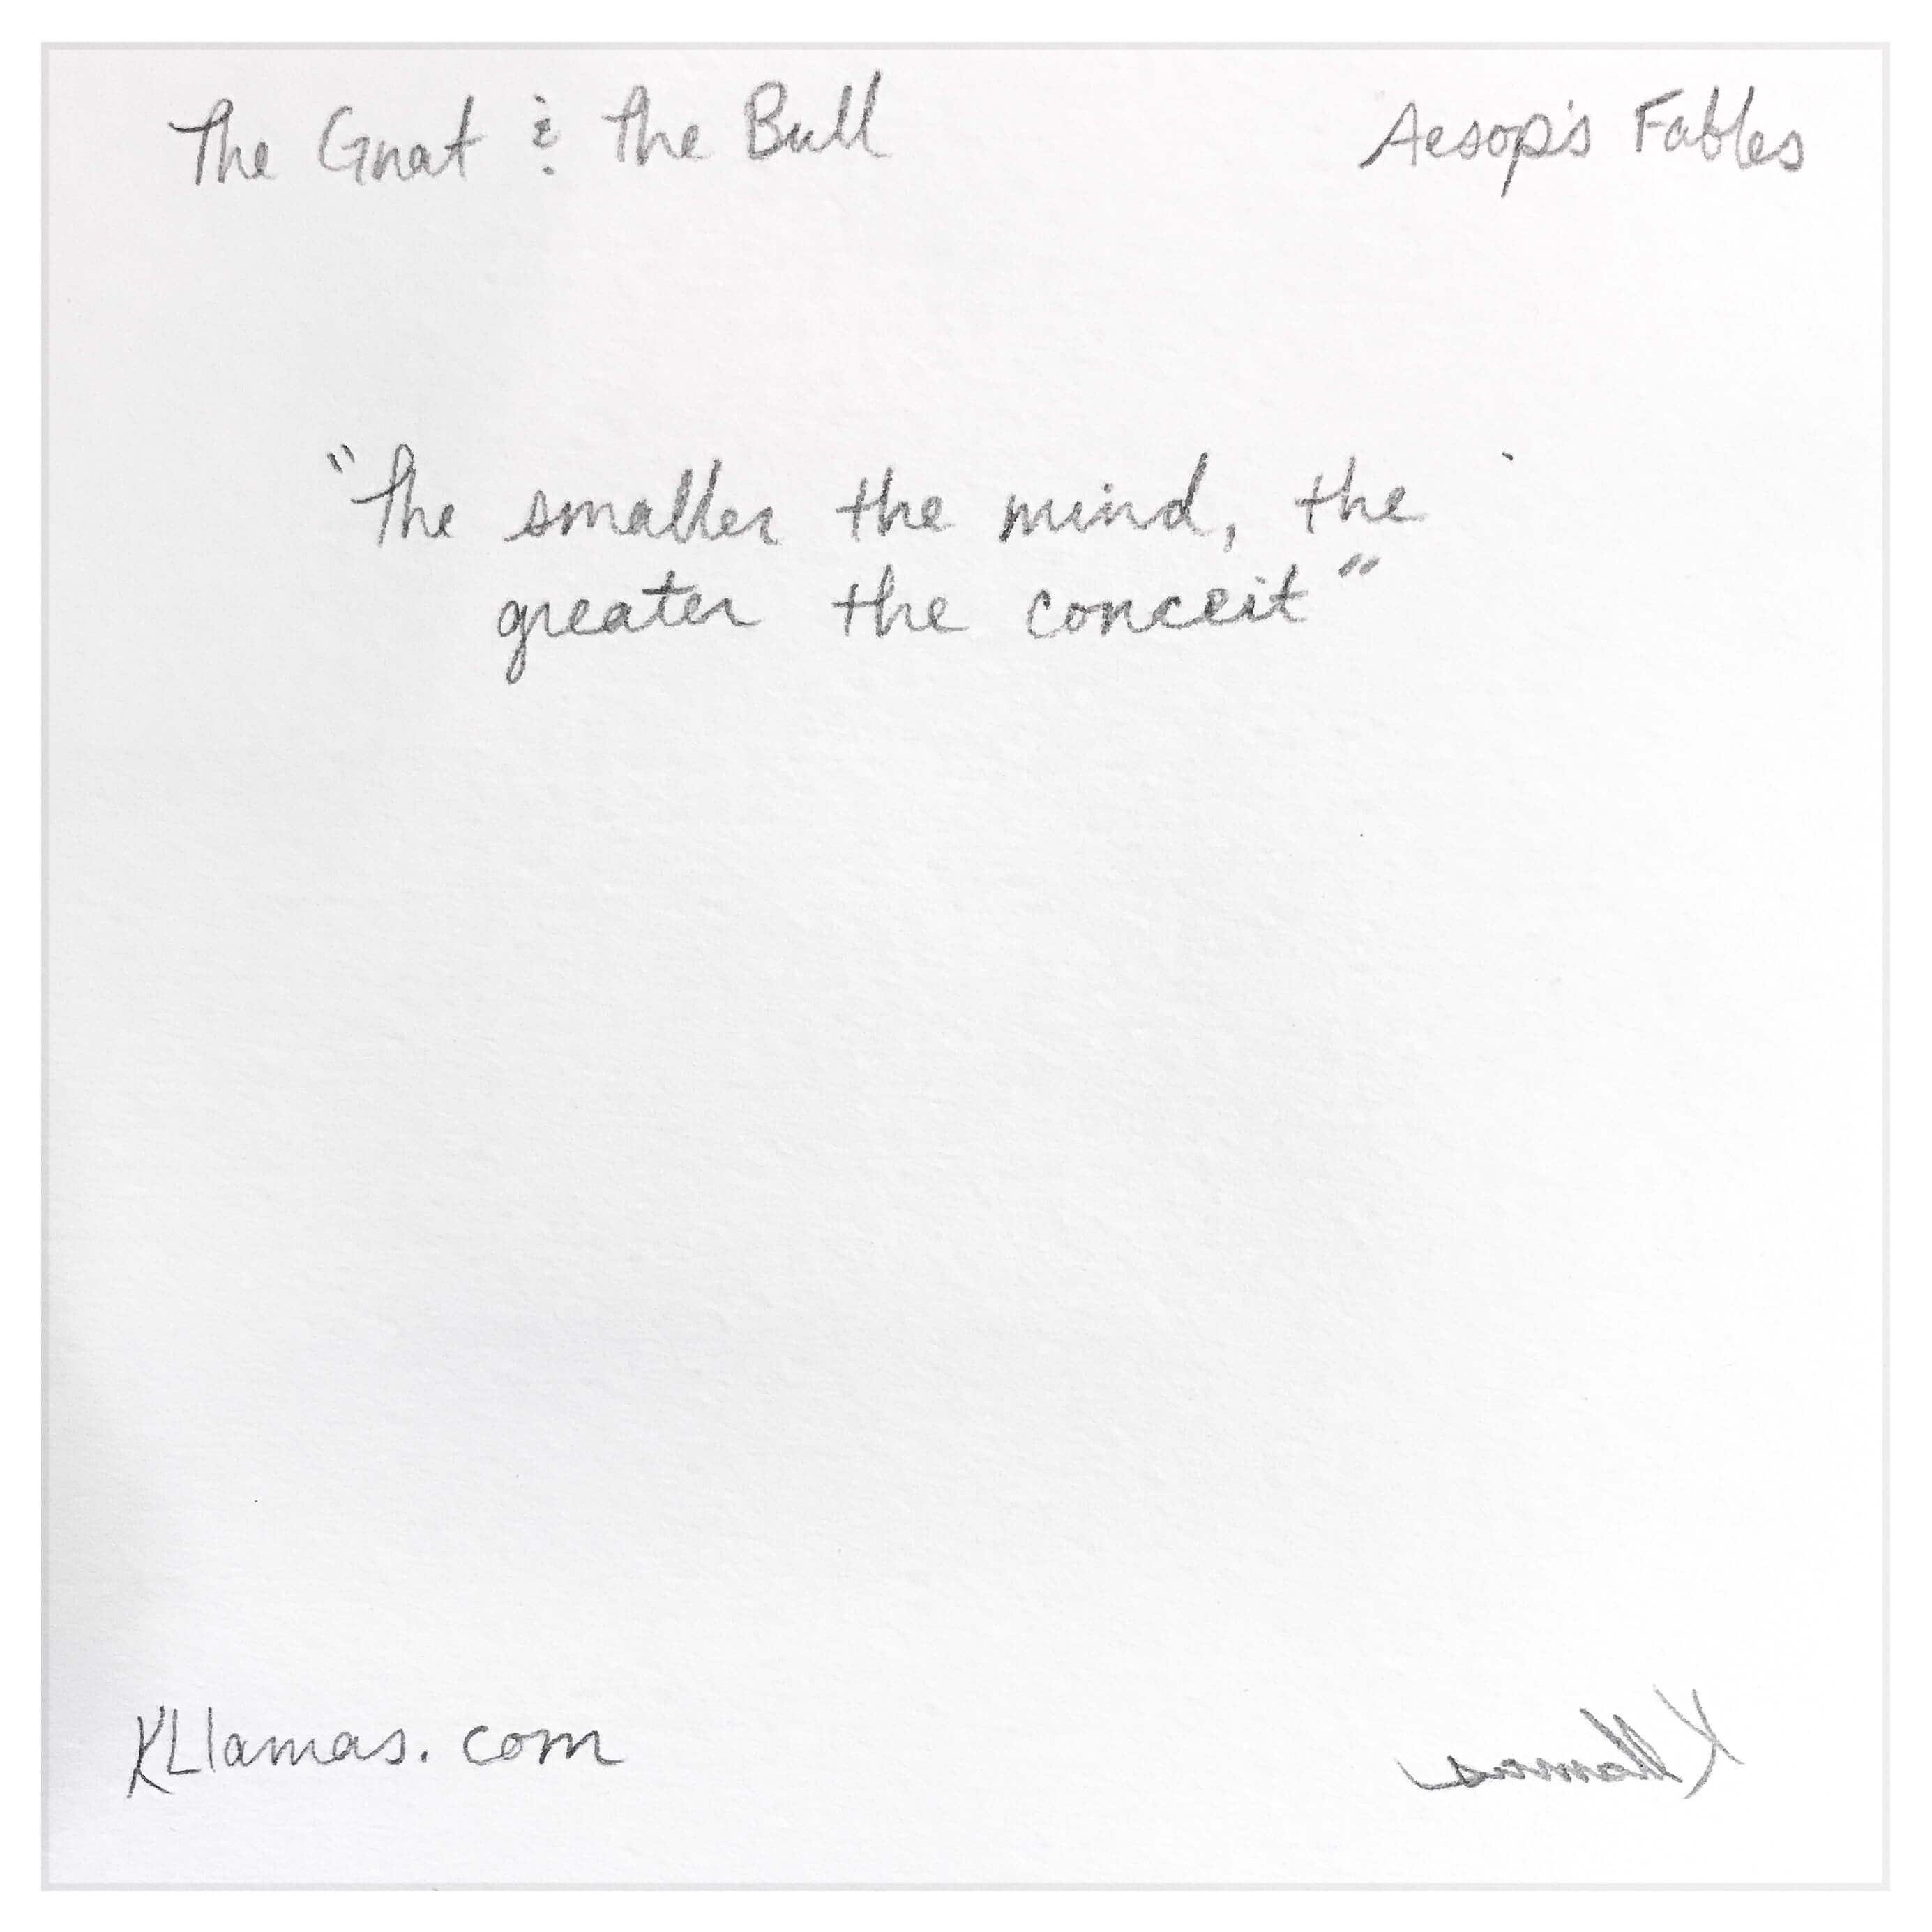 The Gnat & The Bull
Aesop's Fables
"The smaller the mind, the
greater the conceit"
KLlamas.com
KLlamas